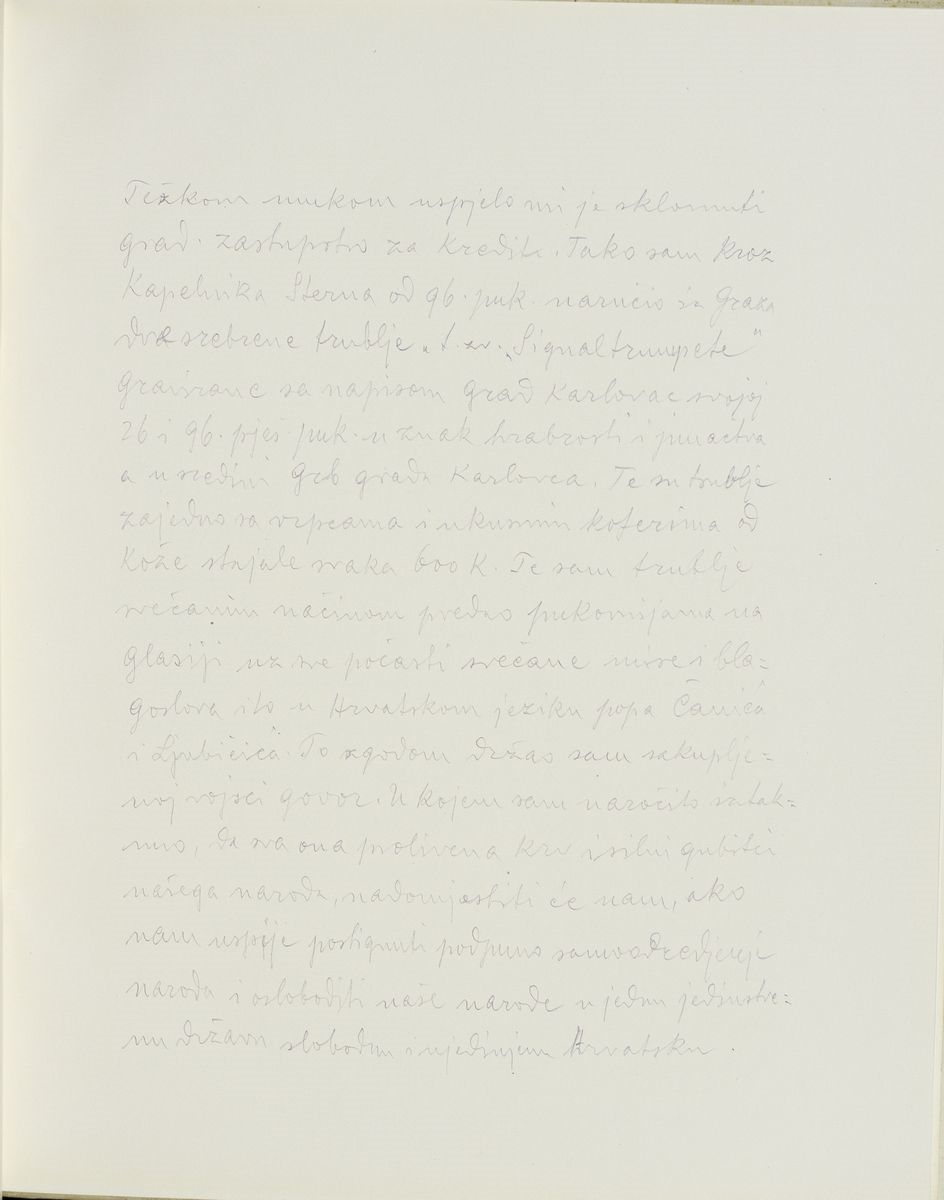 Težkom mukom uspjelo mi je sklonuti
grad. zastupstvo za kredite. Tako sam kroz
Kapelnika Sterna od 96. puk. naručio iz Graza
dve srebrene trublje „t. zv. „Signaltrumpete"
Gravirane sa napisom Grad Karlovac svojoj
26 i 96. pješ. puk. u znak hrabrosti i junačtva
a u sredini Grb grada Karlovca. Te su trublje
zajedno sa vrpcama i ukusnim koferima od
Kože stajale svaka 600 K. Te sam trublje
svečanim načinom predao pukovnijama na
Glasiji uz sve počasti svečane misse i bla=
goslova i to u Hrvatskom jeziku popa Čanića
i Ljubičića. To zgodom držao sam sakuplje=
noj vojsci govor. U kojem sam naročito iztak=
nuo, da sva ona prolivena krv i silni gubitci
našega naroda, nadomjestiti će nam, ako
nam uspije postignuti podpuno samoodredjenje
naroda i osloboditi naše narode u jednu jedinstve=
nu državu slobodnu i ujedinjenu Hrvatsku.